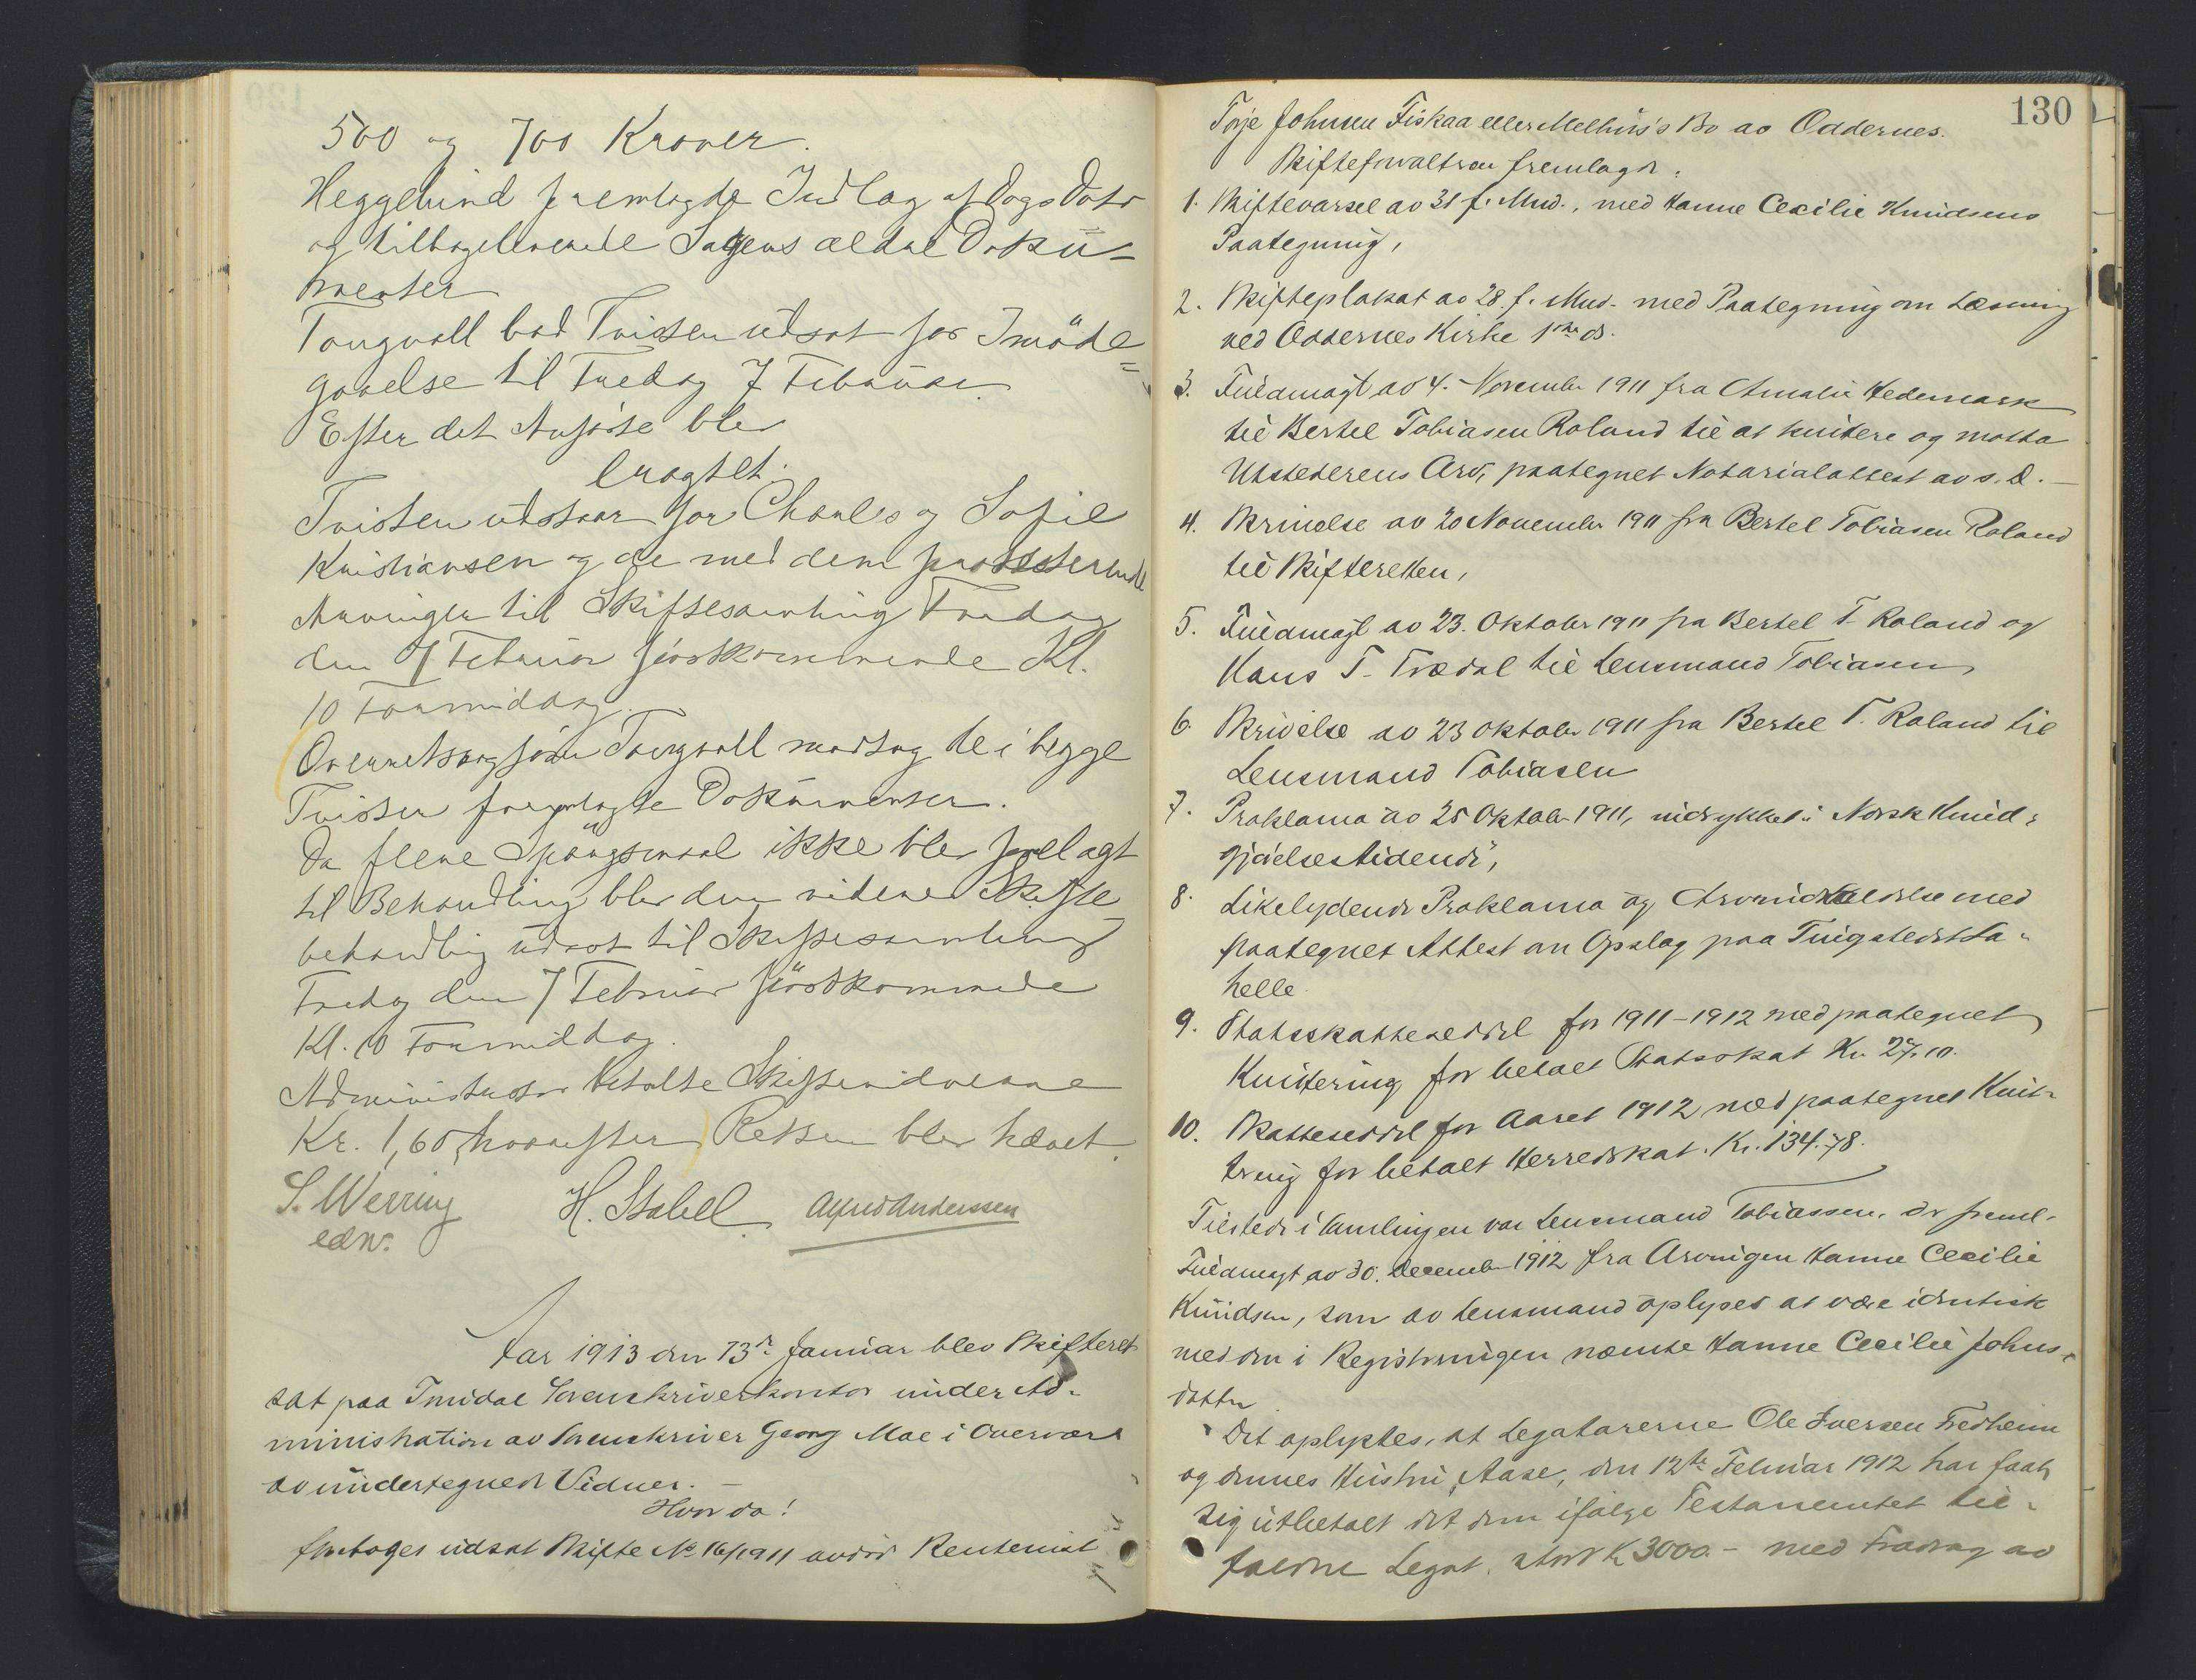 500 og 700 Kroner.
Heggelund fremlagde Indlag af Dags Dato
og tilbageleverede Sagens ældre Doku-
menter
Tangvall bad Tvisten udsat for Imøde-
gaaelse til Fredag 7 Februar.
Efter det Anførte blev
eragtet:
Tvisten utstaar for Charles og Sofie
Kristiansen og de med dem protesterende
Arvinger til Skiftesamling Fredag
den 7 Februar førstkommende Kl.
10 Formiddag.
Overretssagfører Tangvall modtog de i begge
Tvister fremlagte Dokumenter.
Da flere Spørgsmaal ikke blev forelagt
til Behandling blev den videre Skifte
behandling udsat til Skiftesamling
Fredag den 7 Februar førstkommende
Kl. 10 Formiddag.
Administrator betalte Skiftevidnerne
Kr. 1,60, hvorefter Retten blev hævet.
S. Werring H. Stabell Alfred Anderssen
edw.
Aar 1913 den 13de Januar blev Skifteret
sat paa Torridal Sorenskriverkontor under Ad-
ministration av Sorenskriver Georg Moe i Overvær
av undertegnede Vidner. —
Hvor da!
foretoges udsat Skifte No 16/1911 avdød Rentenist
130
Torje Johnsen Fiskaa eller Melhus's Bo av Oddernes.
Skifteforvalteren fremlagde:
1. Skiftevarsel av 31 f. Mnd., med Hanne Cecilie Knudsens
Paategning,
2. Skifteplakat av 28 f. Mnd. med Paategning om Læsning
ved Oddernes Kirke 1ste ds.
3. Fuldmagt av 4. November 1911 fra Amalie Hedemark
til Bertel Tobiasen Roland til at kvittere og motta
Utstederens Arv, paategnet Notarialattest av s. D. —
4. Skrivelse av 20 November 1911 fra Bertel Tobiasen Roland
til Skifteretten,
5. Fuldmagt av 23. Oktober 1911 fra Bertel T. Roland og
Hans T. Trædal til Lensmand Tobiasen
6. Skrivelse av 23 Oktober 1911 fra Bertel T. Roland til
Lensmand Tobiasen
7. Proklama av 25 Oktober 1911, indrykket i Norsk Kund-
gjørelsestidende,
8. Likelydende Proklama og Arveindkaldelse med
paategnet Attest om Opslag paa Tingstedet La-
helle
9. Statsskatteseddel for 1911-1912 med paategnet
Kvittering for betalt Statsskat Kr. 27.10.
10. Skatteseddel for Aaret 1912 med paategnet Kvit-
tering for betalt Herredskat. Kr. 134.78.
Tilstede i Samlingen var Lensmand Tobiassen, der freml.
Fuldmagt av 30. December 1912 fra Arvingen Hanne Cecilie
Knudsen, som av Lensmand oplyses at være identisk
med den i Registreringen nævnte Hanne Cecilie Johns-
datter
Det oplystes, at Legatarerne Ole Iversen Fredheim
og dennes Hustru, Aase, den 12te Februar 1912 har faat
sig utbetalt det dem ifølge Testamentet til-
faldne Legat, stort K 3000.- med Fradrag av